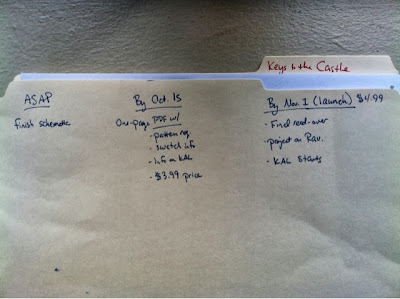 Keys to the Castle
ASAP
finish schematic
By Oct. 15
One-page PDF w/
- pattern req.
- swatch info
- info on KAL
- $3.99 price
By Nov. 1 (launch) $4.99
- Final read-over
- project on Rav.
- KAL starts